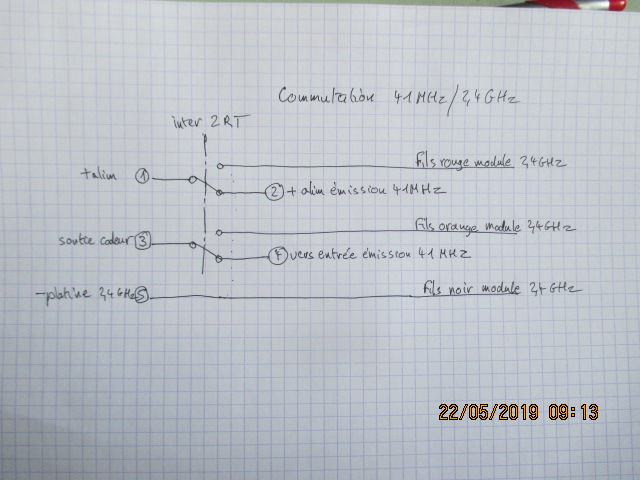 Commutation 41MHz/2,4GHz
inter 2RT
Fils rouge module 2,4GHz
+alim 1
2 + alim émission 41MHz
Fils orange module 2,4GHz
sortie codeur 3
4 vers entrée émission 41MHz
-platine 2,4GHz 5
Fils noir module 2,4GHz
22/05/2019 09:13